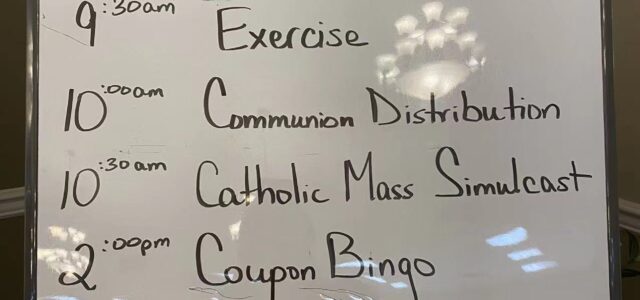 9:30am Exercise
10:00am Communion Distribution
10:30am Catholic Mass Simulcast
2:00pm Coupon Bingo